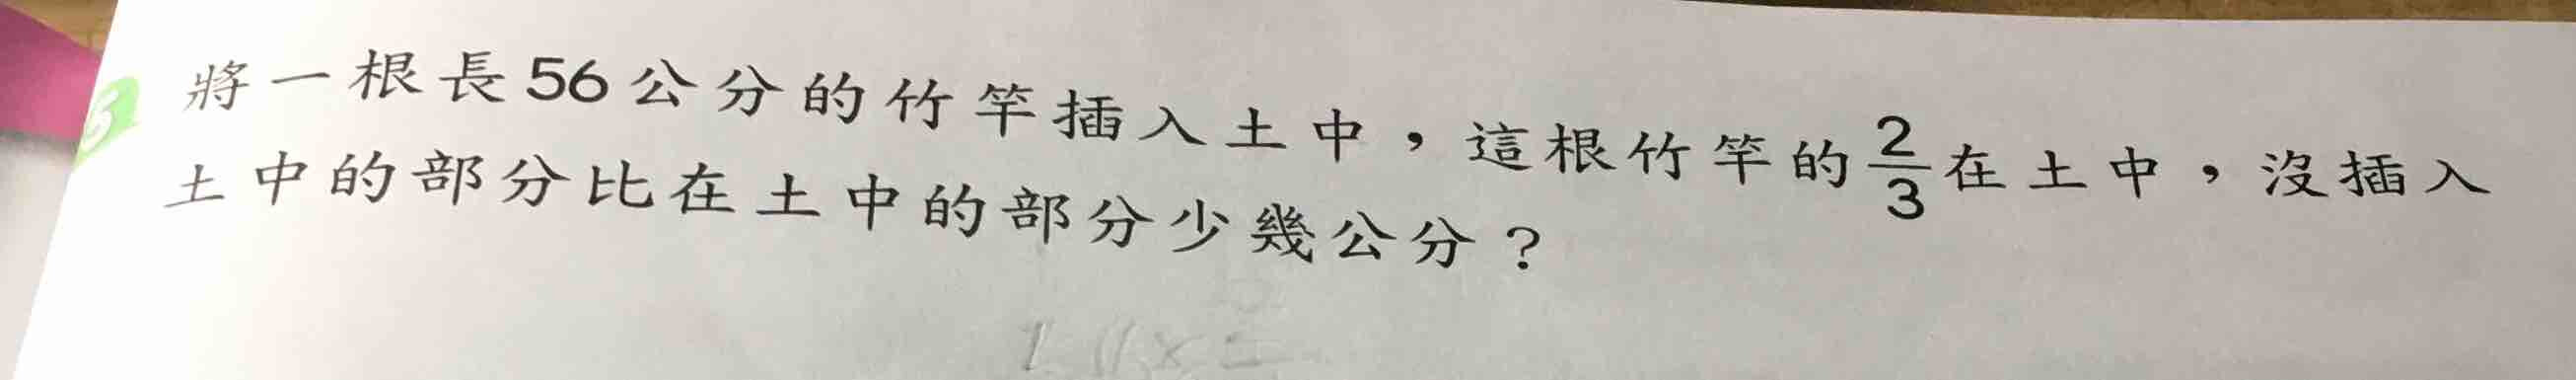 5 將一根長56公分的竹竿插入土中，這根竹竿的2/3在土中，沒插入
土中的部分比在土中的部分少幾公分？